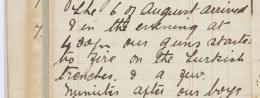 The 6 of August arrived
7. & in the evening at
4.30pm our guns started
to fire on the Turkish
trenches. & a few
minutes after our boys